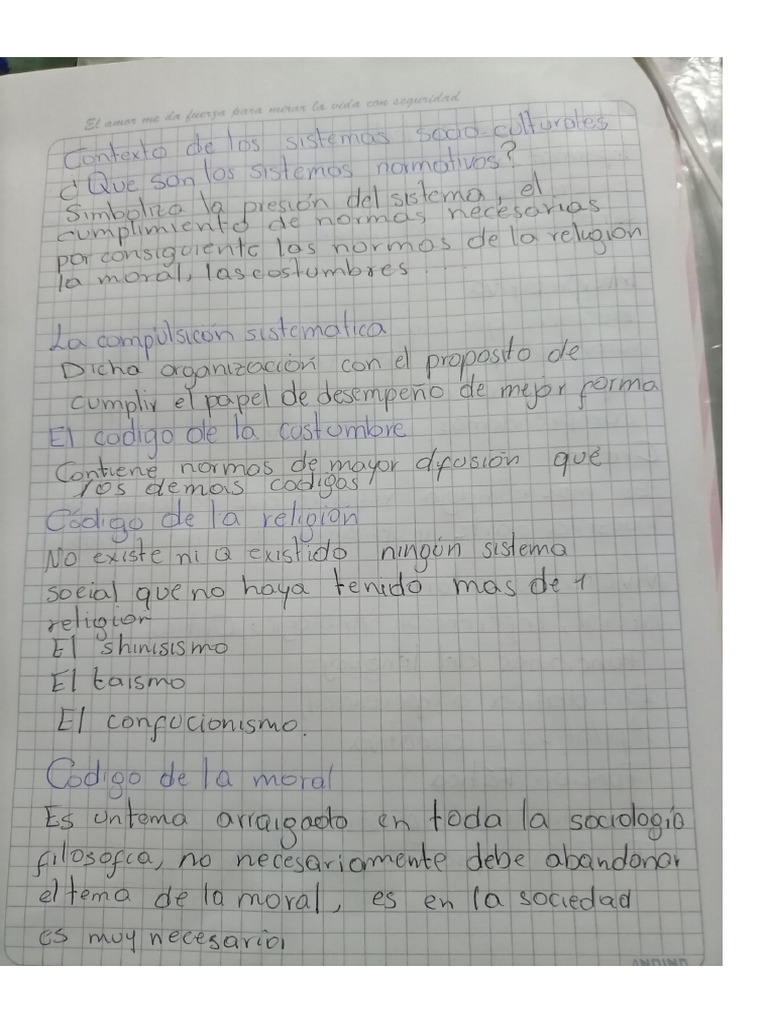 El amor me da fuerza para mirar la vida con seguridad
Contexto de los sistemas socio-culturales
¿Que son los sistemas normativos?
Simboliza la presión del sistema, el
cumplimiento de normas necesarias
por consiguiente las normas de la religión
la moral, las costumbres
La compulsicón sistematica
Dicha organización con el proposito de
cumplir el papel de desempeño de mejor forma
El codigo de la costumbre
Contiene normas de mayor difusión que
los demas codigos
Código de la religion
No existe ni a existido ningún sistema
social que no haya tenido mas de 1
religion
El shinisismo
El taismo
El confucionismo.
Codigo de la moral
Es un tema arraigado en toda la sociologia
filosofica, no necesariamente debe abandonar
el tema de la moral, es en la sociedad
es muy necesario,
ANDINO